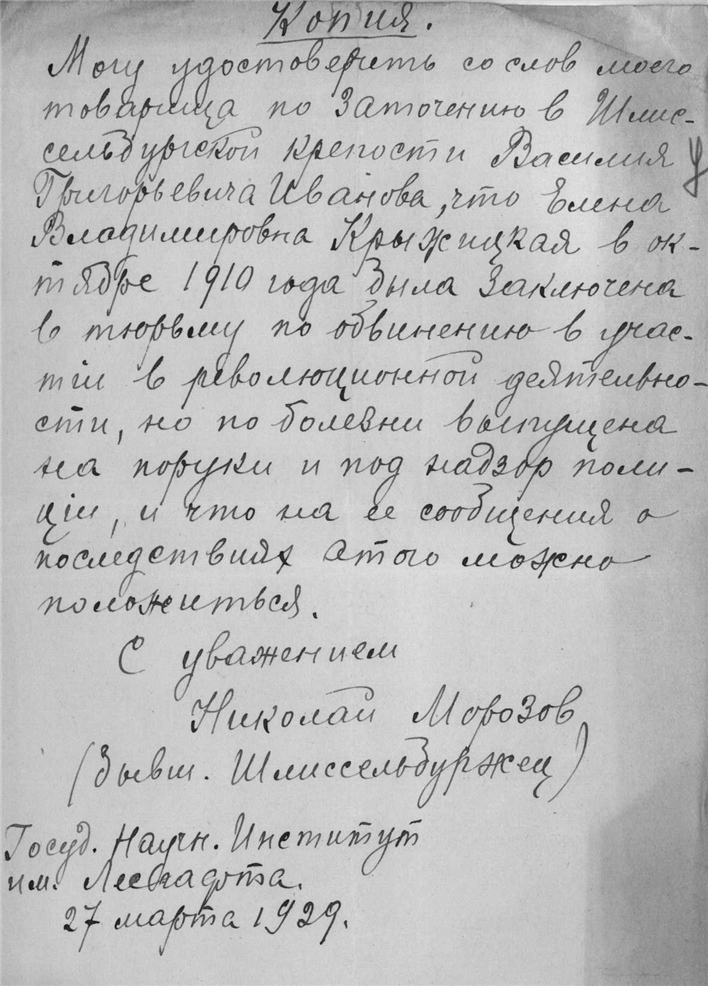 Копия.
Могу удостоверить со слов моего
товарища по заточению в Шлис-
сельбургской крепости Василия
Григорьевича Иванова, что Елена
Владимировна Крыжицкая в ок-
тябре 1910 года была заключена
в тюрьму по обвинению в учас-
тiи в революционной деятельно-
сти, но по болезни выпущена
на поруки и под надзор поли-
цiи, и что на ее сообщения о
последствиях этого можно
положиться.
С уважением
Николай Морозов
(бывш. Шлиссельбуржец)
Госуд. Научн. Институт
им. Лесгафта.
27 марта 1929.